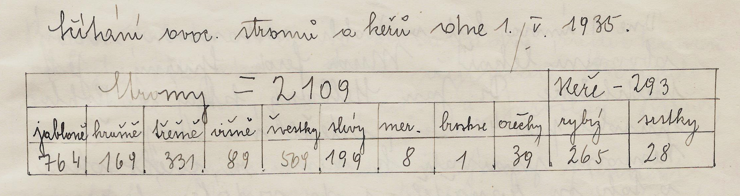 Sčítání ovoc. stromů a keřů dne 1./V. 1935.
Stromy = 2109 Keře - 293
jabloně hrušně třešně višně švestky slívy mer. broskve ořechy rybýz srstky
764 169 331 89 509 199 8 1 39 265 28